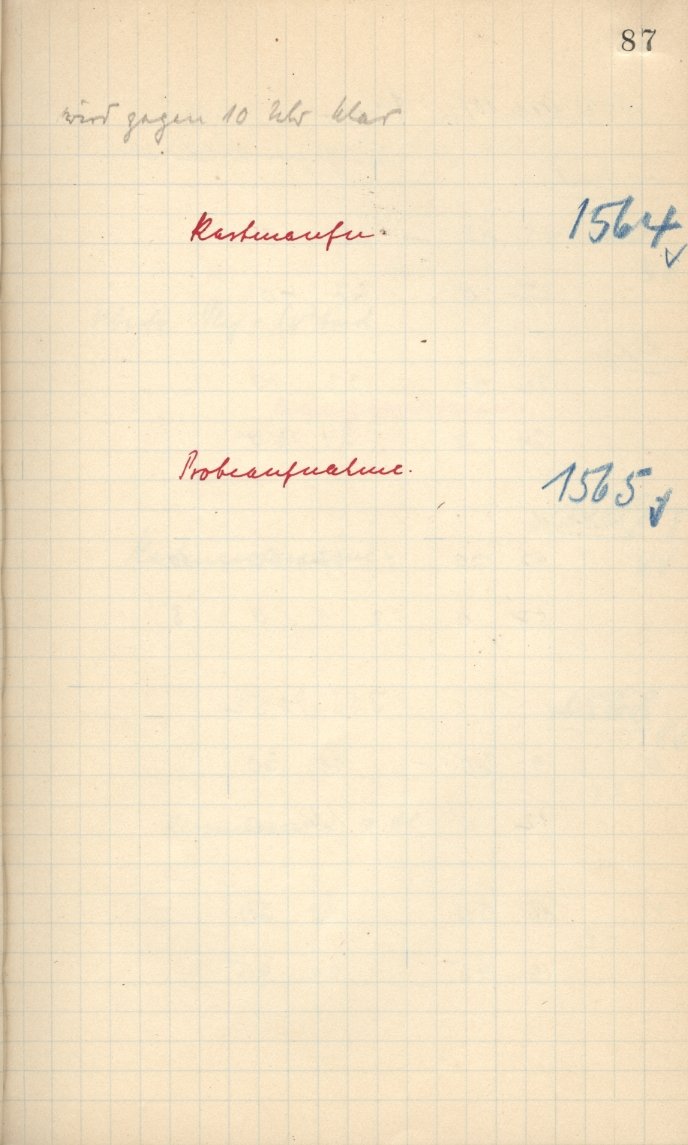 87
wird gegen 10 Uhr klar
1564
Probeaufnahme.
1565